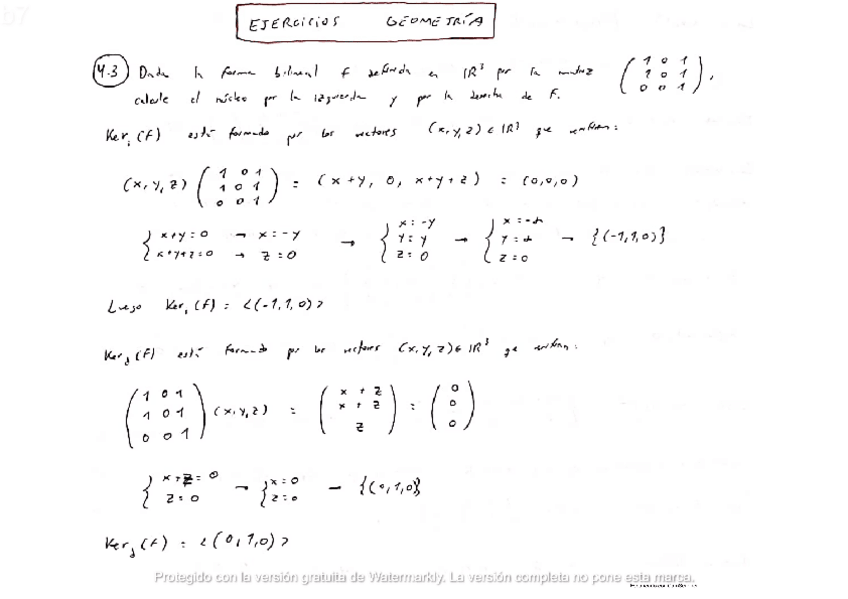 EJERCICIOS GEOMETRÍA
4.3 Dada la forma bilineal f definida en IR³ por la matriz (1 0 1 / 1 0 1 / 0 0 1),
calcule el núcleo por la izquierda y por la derecha de F.
Ker_i (f) está formado por los vectores (x,y,z) ∈ IR³ que verifican:
(x,y,z) (1 0 1 / 1 0 1 / 0 0 1) = (x+y, 0, x+y+z) = (0,0,0)
{ x+y=0 → x=-y / x+y+z=0 → z=0 → { x=-y / y=y / z=0 → { x=-α / y=α / z=0 → {(-1,1,0)}
Luego Ker_i (f) = <(-1,1,0)>
Ker_d (f) está formado por los vectores (x,y,z) ∈ IR³ que verifican:
(1 0 1 / 1 0 1 / 0 0 1) (x,y,z) = (x+z / x+z / z) = (0 / 0 / 0)
{ x+z=0 / z=0 → { x=0 / z=0 — {(0,1,0)}
Ker_d (f) = <(0,1,0)>
Protegido con la versión gratuita de Watermarkly. La versión completa no pone esta marca.